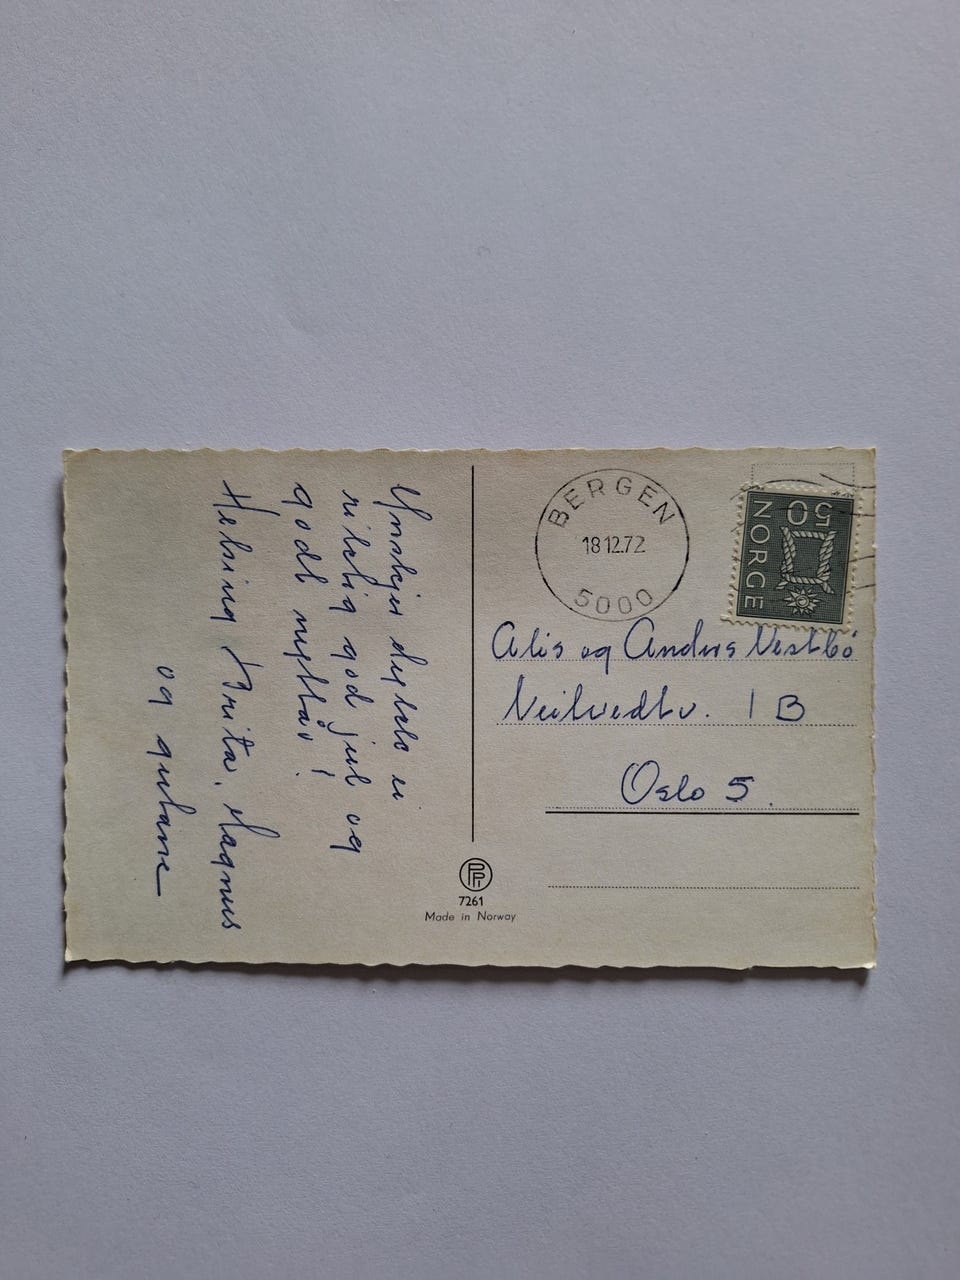 Ynskjer dykk ei
riktig god jul og
godt nyttår!
Helsing Brita, Magnus
og gutane
BERGEN
18 12.72
5000
50
NORGE
Alis og Anders Vestbö
Veitvedtv. 1 B
Oslo 5.
PP
7261
Made in Norway